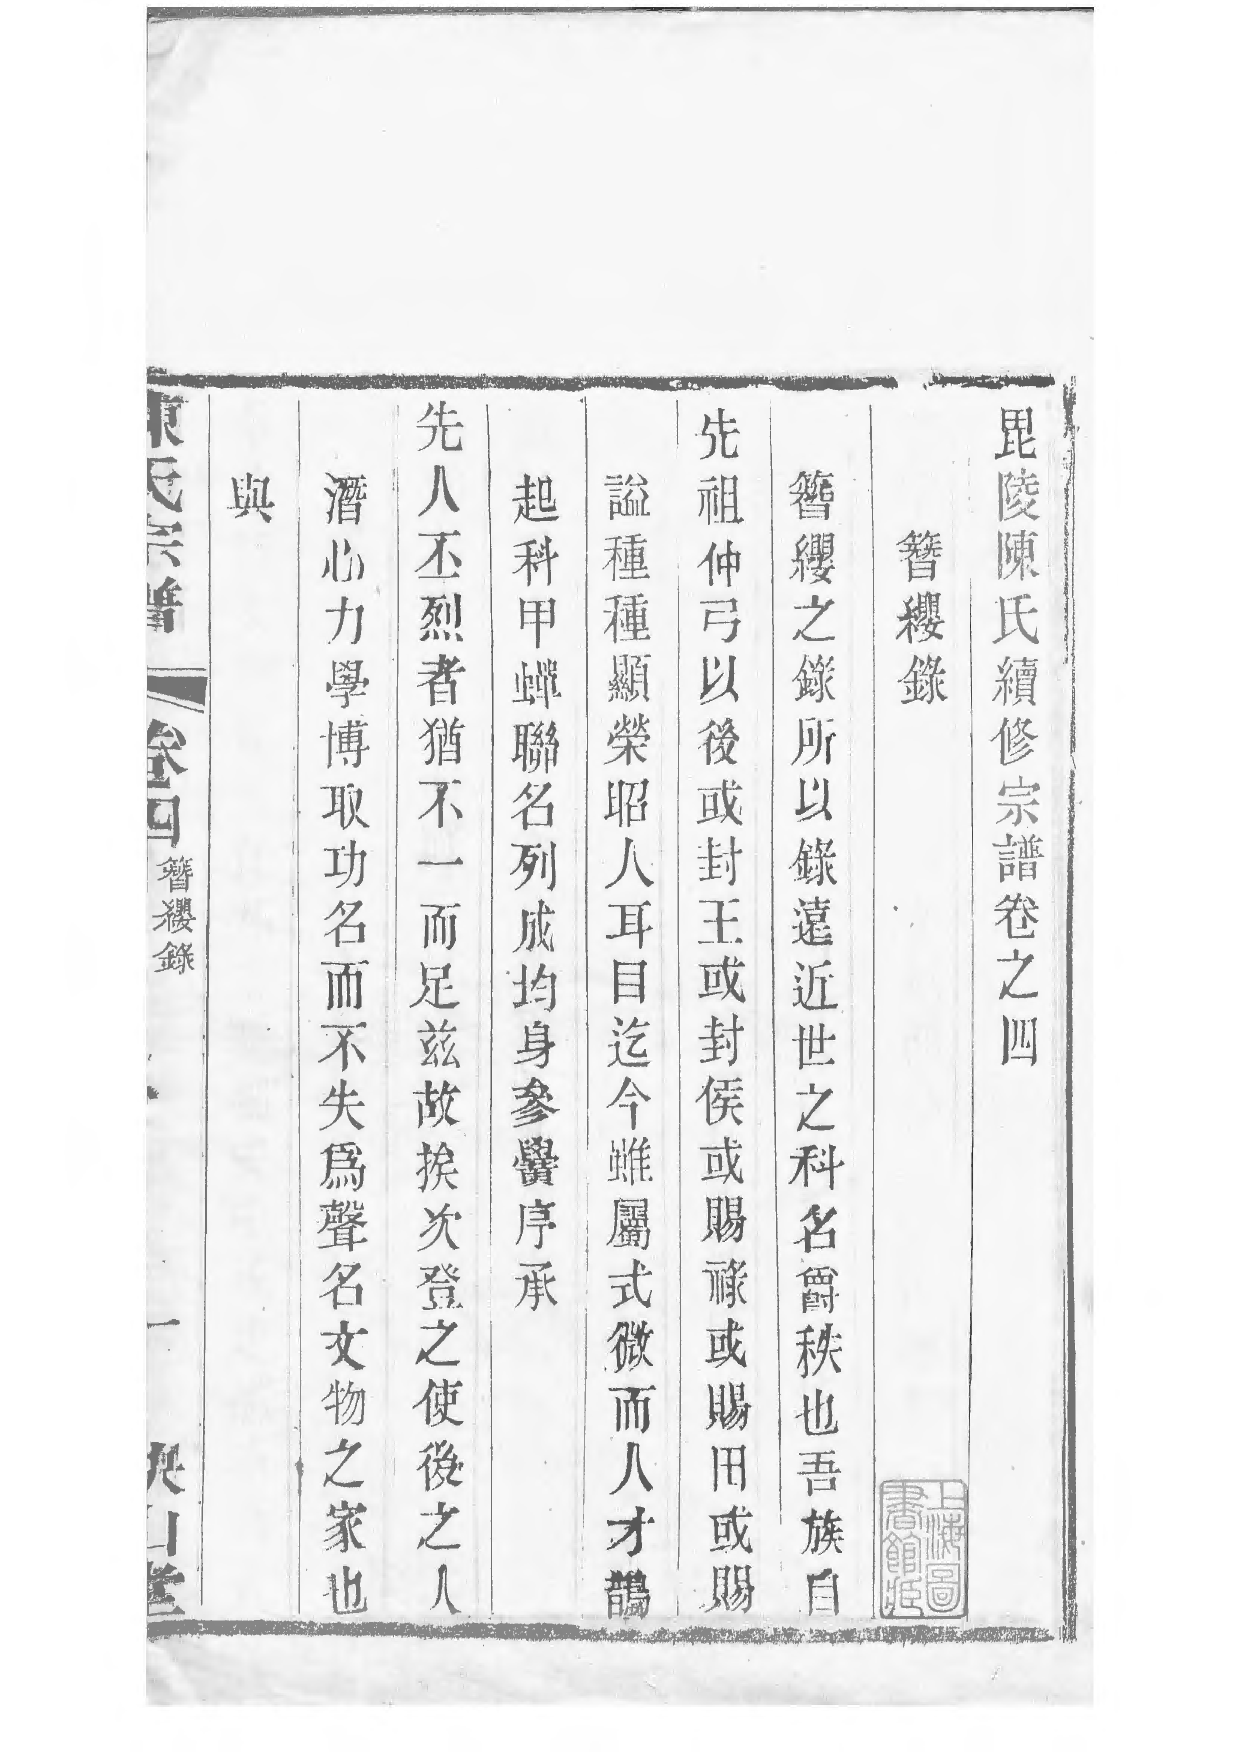 毘陵陳氏續修宗譜卷之四
簪纓錄
簪纓之錄所以錄遠近世之科名爵秩也吾族自
先祖仲弓以後或封王或封侯或賜祿或賜田或賜
諡種種顯榮昭人耳目迄今雖屬式微而人才鵲
起科甲蟬聯名列成均身參黌序承
先人丕烈者猶不一而足茲故挨次登之使後之人
潛心力學博取功名而不失爲聲名文物之家也
與
陳氏宗譜
卷四
簪纓錄
一
上海圖
書館藏